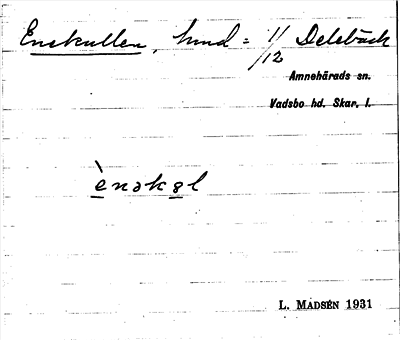 Enekullen, hmd = 11/12 Delebäck
Amnehärads sn.
Vadsbo hd. Skar. l.
ènəkəl
L. MADSÉN 1931